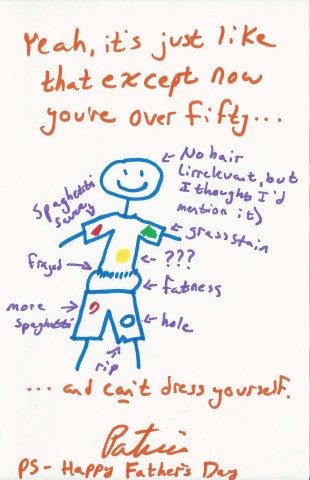 Yeah, it's just like
that except now
you're over fifty...
No hair
(irrelevant, but
I thought I'd
mention it)
Spaghetti
sauce
grass stain
???
frayed
fatness
more
spaghetti
hole
rip
...and can't dress yourself.
Patric
PS - Happy Father's Day